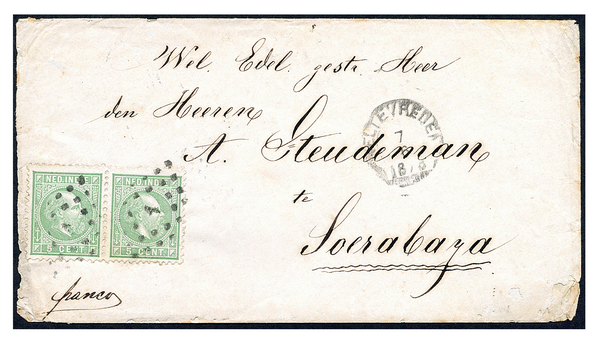 Wel. Edel. gestr. Heer
den Heeren
A. Steudeman
te
Soerabaya
franco
NED. INDIE
5 CENT
NED. INDIE
5 CENT
WELTEVREDEN
7
187